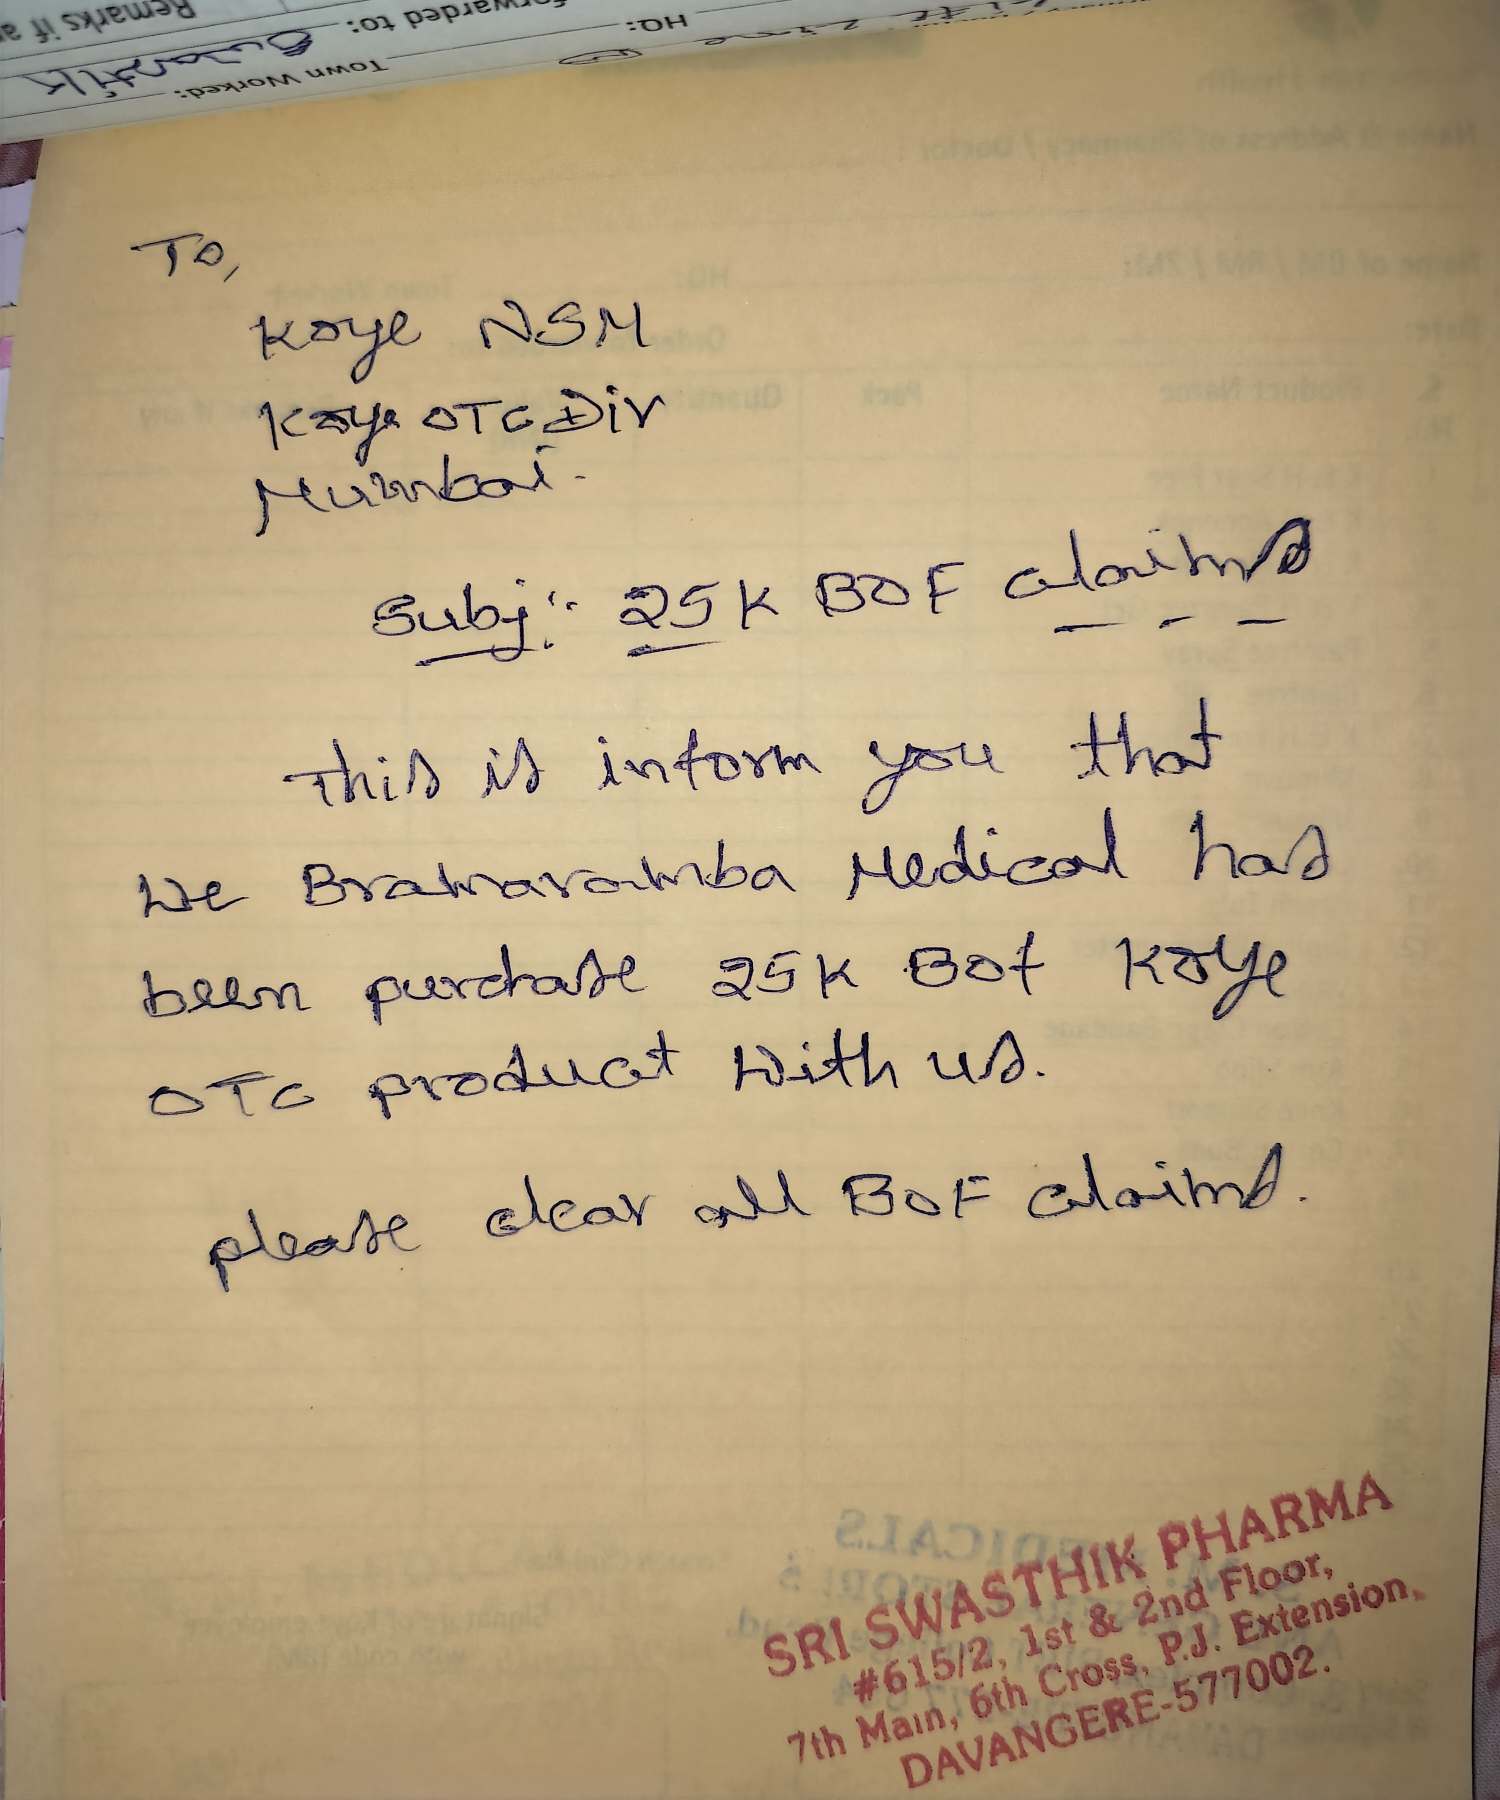 Remarks if a
forwarded to: Swastik
HQ:
Town Worked:
To,
Koye NSM
Koye OTC Div
Mumbai.
Subj:- 25K BOF claims
This is inform you that
We Bramaramba Medical has
been purchase 25K BOF Koye
OTC product with us.
please clear all BOF claims.
SRI SWASTHIK PHARMA
#615/2, 1st & 2nd Floor,
7th Main, 6th Cross, P.J. Extension,
DAVANGERE-577002.